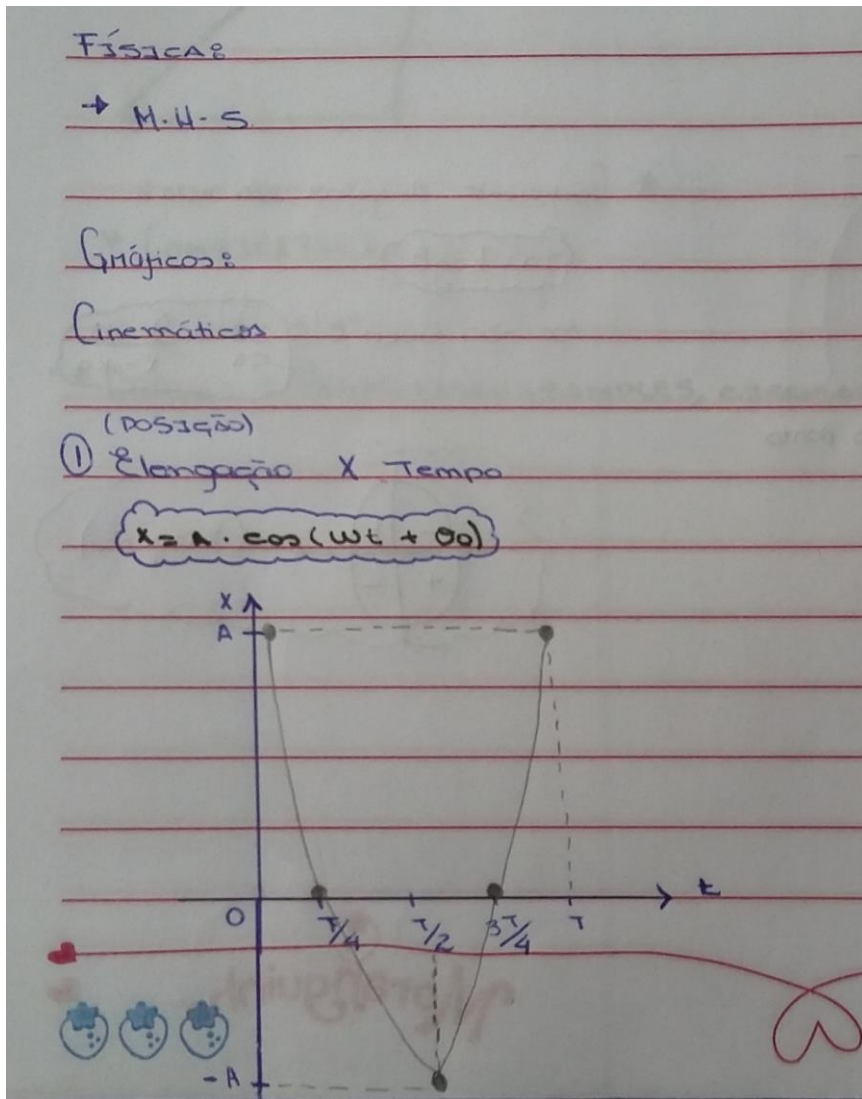 FÍSICA:
→ M.H.S.
Gráficos:
Cinemáticos
(POSIÇÃO)
① Elongação X Tempo
x = A · cos(ωt + θ0)
X
A
t
0
T/4
T/2
3T/4
T
-A